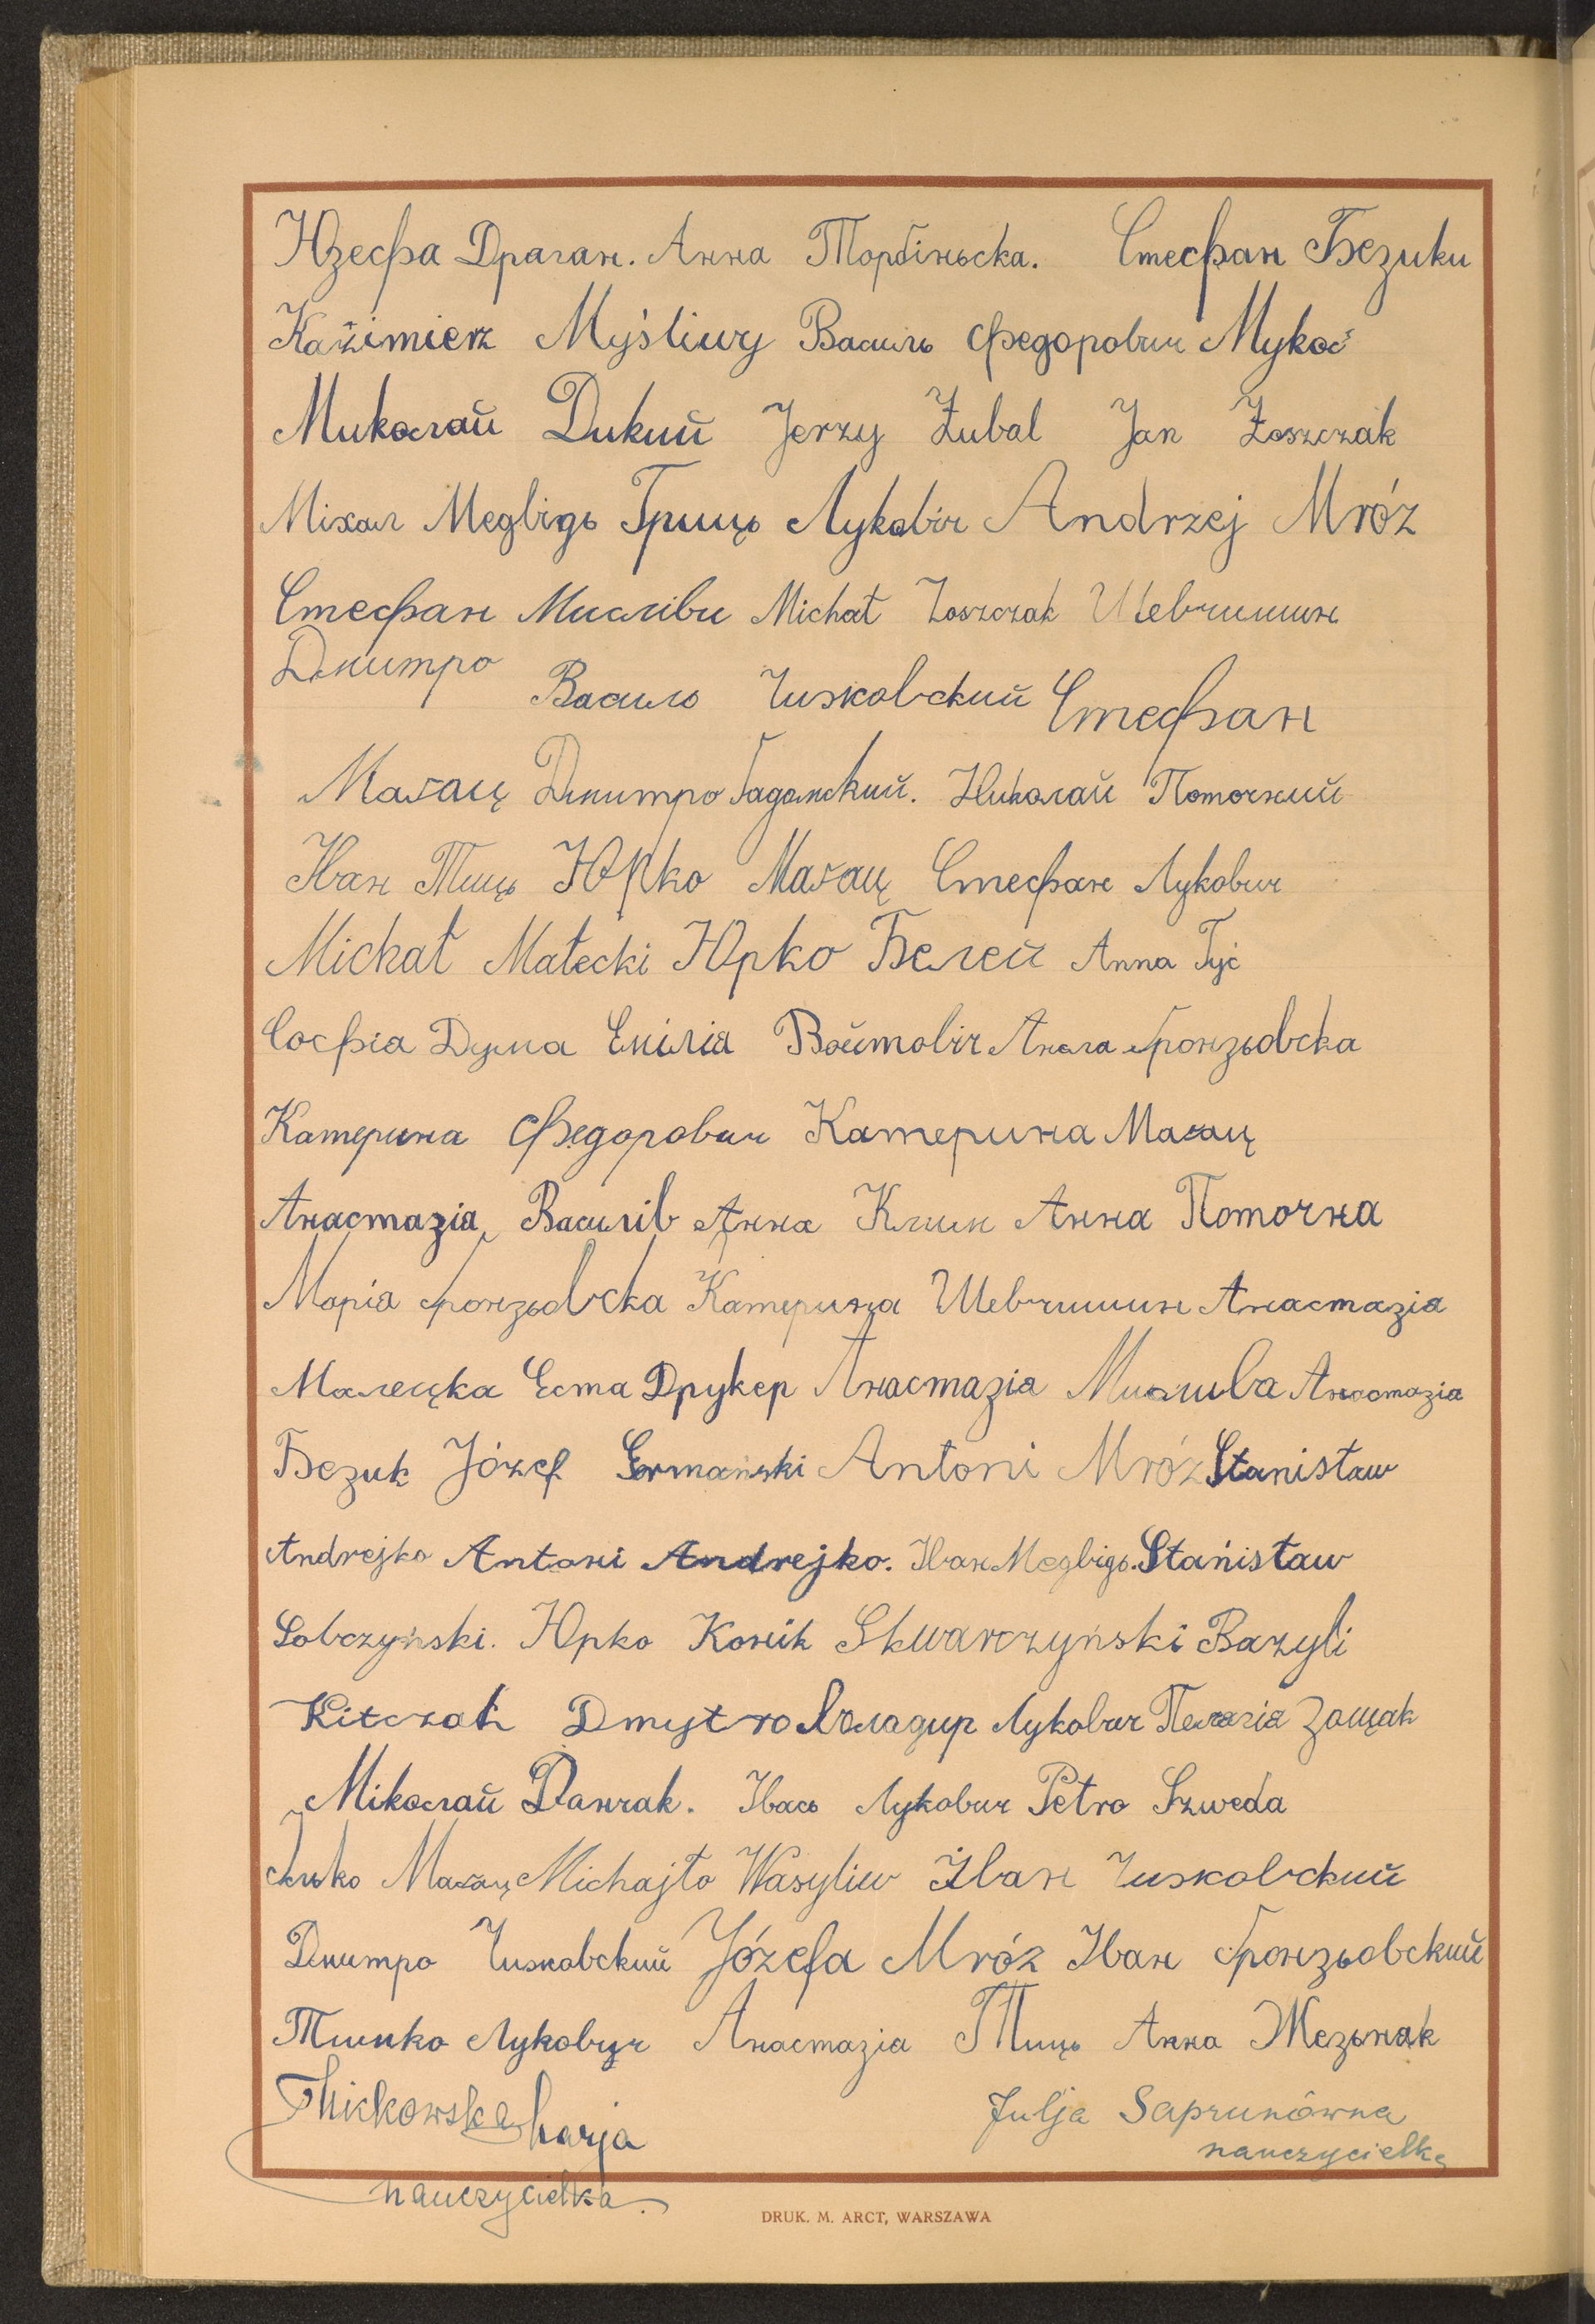 Юзефа Драган. Анна Торбіньска. Стефан Безики
Kaźimierz Myśliwy Василь Федорович Мукос
Миколай Дикий Jerzy Żubal Jan Łoszczak
Міхал Медвідь Гриць Лукавіч Andrzej Mróz
Стефан Мисливи Michał Łoszczak Шевчишин
Дмитро Василь Чижовский Стефан
Магац Дмитро Гадамский. Николай Поточний
Іван Тиць Юрко Магац Стефан Лукович
Michał Małecki Юрко Белей Anna Гус
Софіа Дума Емілія Войтовіч Анна Гронзьовска
Катерина Федорович Катерина Магац
Анастазіа Василів Анна Клим Анна Поточна
Маріа Гронзьовска Катерина Шевчишин Анастазіа
Малецка Еста Друкер Анастазіа Мислива Анастазіа
Безик Józef Germański Antoni Mróz Stanisław
Andrejko Antoni Andrejko. Іван Медвідь. Stańisław
Sobczyński. Юрко Коник Skwarczyński Bazyli
Kitczak Dmytro Воладир Лукович Пелагіа Зощак
Міколай Данчак. Івась Лукович Petro Szweda
Ілько Магац Michajło Wasyliw Іван Чижовский
Дмитро Чижовский Józefa Mróz Іван Гронзьовский
Тимко Лукович Анастазіа Тиць Анна Жезьнак
Julja Saprunówna
nauczycielka
Marja
nauczycielka
DRUK. M. ARCT, WARSZAWA